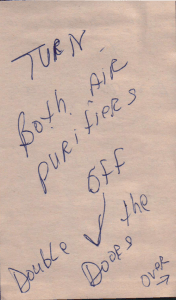 TURN
Both AIR
PURIFIERS
OFF
Double ✓ the
Doors
OVER →